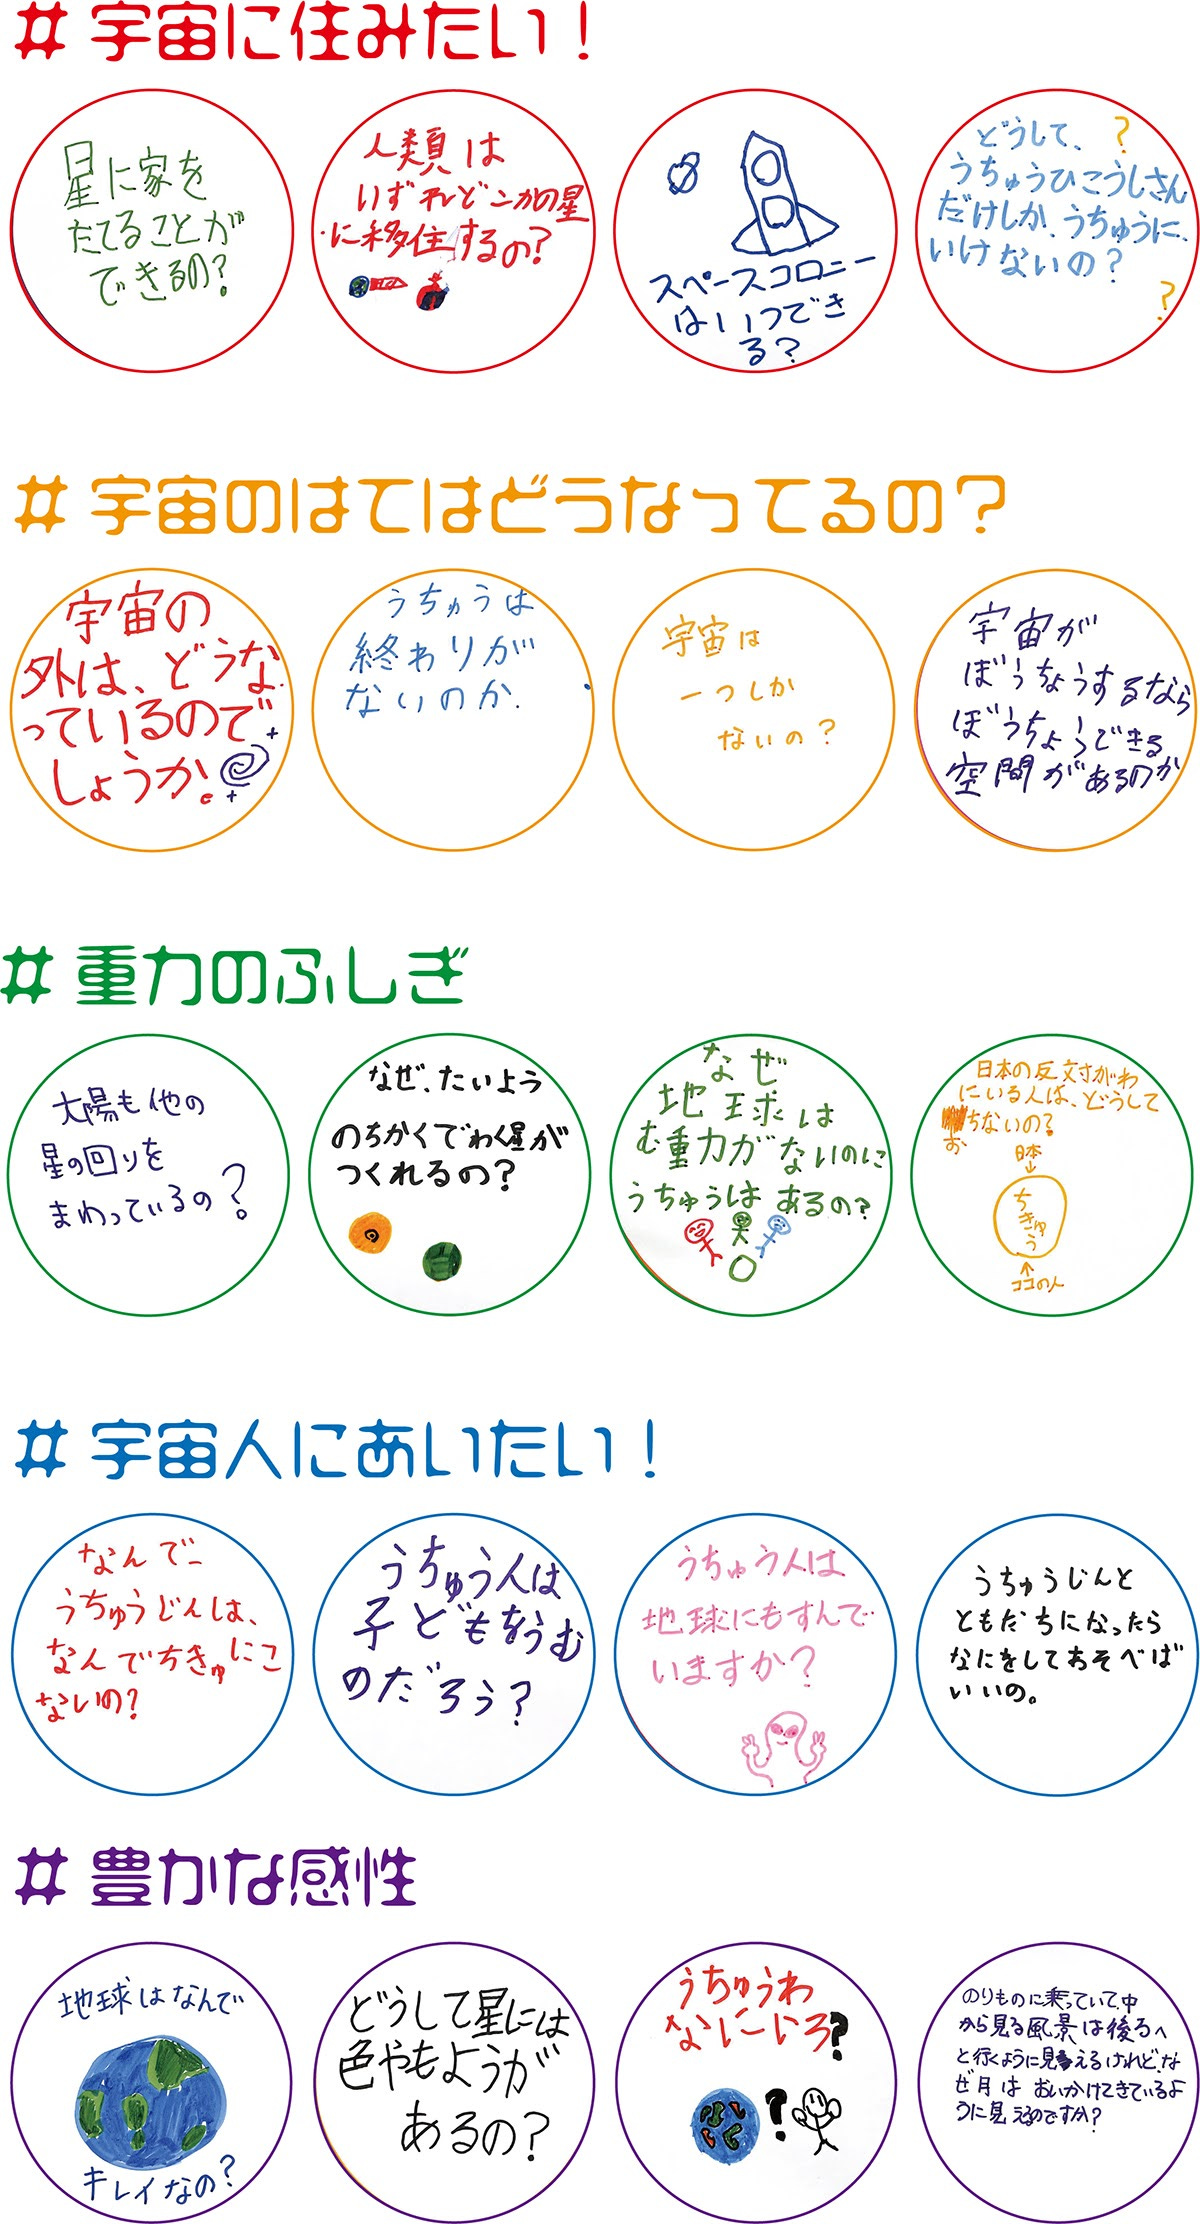 # 宇宙に住みたい！
星に家を
たてることが
できるの？
人類は
いずれどこかの星
に移住するの？
スペースコロニー
はいつでき
る？
どうして、？
うちゅうひこうしさん
だけしか、うちゅうに
いけないの？
？
# 宇宙のはてはどうなってるの？
宇宙の
外は、どうな
っているので
しょうか。
うちゅうは
終わりが
ないのか。
宇宙は
一つしか
ないの？
宇宙が
ぼうちょうするなら
ぼうちょうできる
空間があるのか
# 重力のふしぎ
太陽も他の
星の回りを
まわっているの？
なぜ、たいよう
のちかくでわく星が
つくれるの？
なぜ
地球は
む重力がないのに
うちゅうは あるの？
日本の反対がわ
にいる人は、どうして
ちないの？
お
日本
↓
ちきゅう
↑
ココの人
# 宇宙人にあいたい！
なんで
うちゅうじんは、
なんでちきゅにこ
ないの？
うちゅう人は
子どもをうむ
のだろう？
うちゅう人は
地球にもすんで
いますか？
うちゅうじんと
ともだちになったら
なにをしてあそべば
いいの。
# 豊かな感性
地球はなんで
キレイなの？
どうして星には
色やもようが
あるの？
うちゅうわ
なにいろ？
？
のりものに乗っていて、中
から見る風景は後ろへ
と行くように見えるけれど、な
ぜ月は おいかけてきているよ
うに見えるのですか？